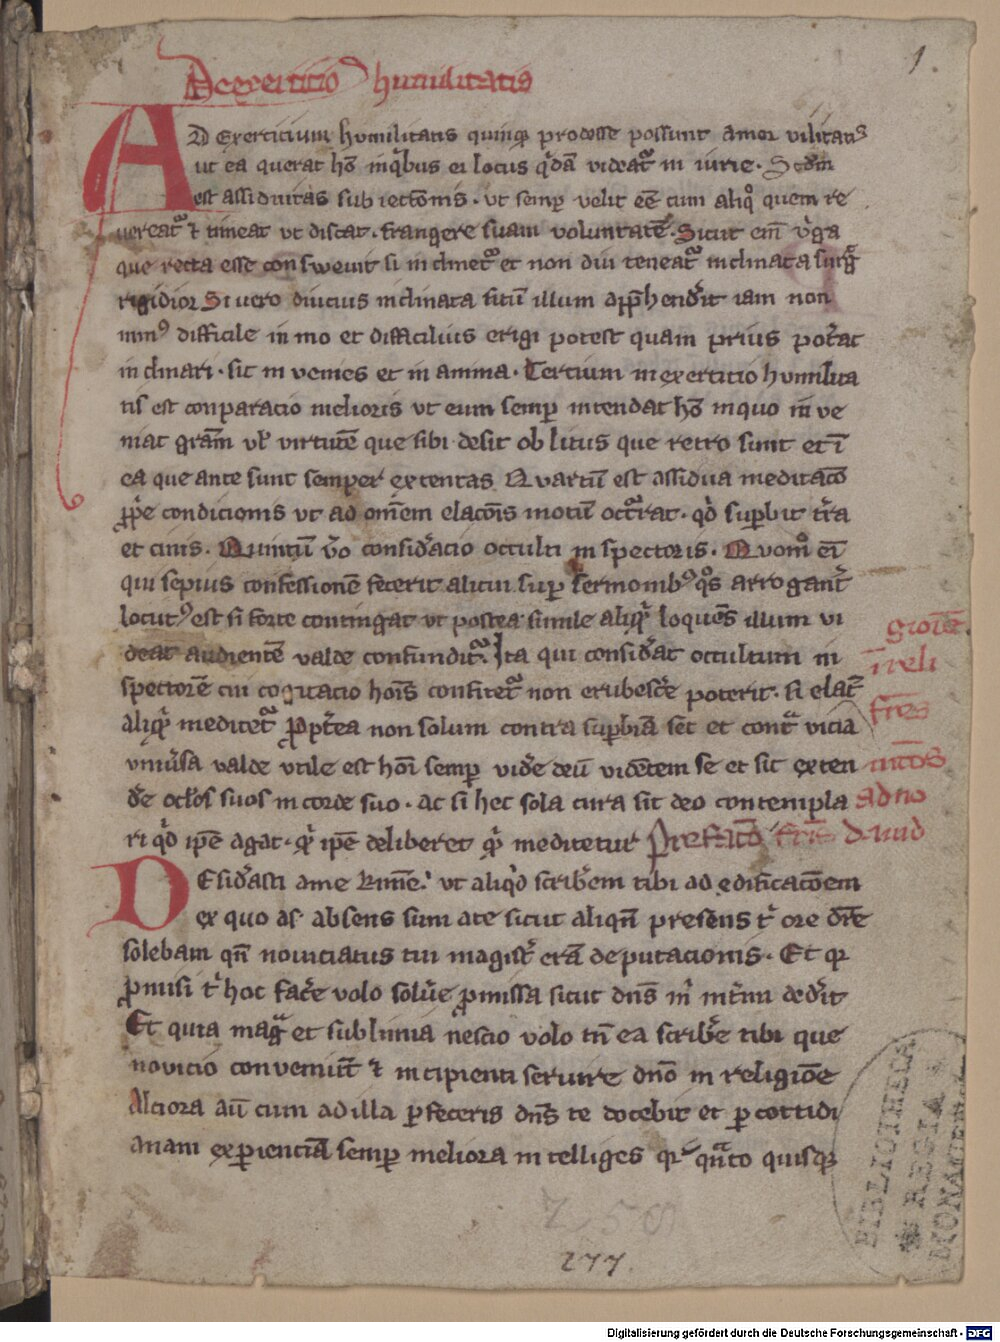 De exercitio humilitatis
1.
AD Exercicium humilitatis quinque prodesse possunt amor vilitatis
ut ea querat hō in qͥbus ei locus qͥdā videatᷣ in iurie. Scdm
est assiduitas sub iectōnis. vt semꝑ velit eē cum aliqͦ quem re
uereatᷣ ⁊ timeat vt discat. frangere suam voluntatē. Sicut em̄ v̓ga
que recta esse conswevit si inclinetᷣ et non diu teneatᷣ inclinata surgͥt
rigidior Si vero diucius inclinata situ illum apꝓhender̓it iam non
minꝰ difficile in mo et difficilius erigi potest quam prius pot̓at
inclinari. sic invenies et in anima. Tercium in exertitio humilita
tis est conparacio melioris vt eum semꝑ intendat hō in quo in ve
niat gram̄ vl̓ virtutē que sibi desit oblitus que retro sunt et ī
ea que ante sunt semper extentas Quartū est assidua meditacō
ꝓpe condicionis vt ad omēm elacōis motū occͬrat. qd̓ suꝑbit t̓ra
et cinis. Quintū v̓o consid̓acio occulti in spectoris. Quomͦ eī
qui sepius confessionē fecerit alicui suꝑ sermonibꝰ qͦs arrogant̓
locutꝰ est si forte contingat vt postea simile aliqͥd loquēs illum vi
deat audientē valde confunditᷣ. Ita qui consid̓at occultum in
spectorē cui cogitacio hoīs confitetᷣ non erubesc̓e poterit. si elat̄
aliqͥd meditetᷣ ꝓpt̓ea non solum contra suꝑbiā set et contᷓ vicia
univ̓sa valde vtile est hoī semꝑ vid̓e deū vidētem se et sic exten
d̓e oc̄los suos in corde suo. ac si hec sola cura sit deo contempla
ri qͥd ipē agat. qͥd ipē deliberet qͥd meditetur Prefacō frīs Dauid
ad no
uitios
fr̄es
ī reli
gione.
DEsid̓asti a me kr̄ime. vt aliqͥd scrib̓em tibi ad edificacōem
ex quo absens sum a te sicut aliqn̄ presens t̓ ore d̓re
solebam qn̄ nouiciatus tui magist̓ erā deputacionis. Et qꝛ
ꝓmisi t̓ hoc fac̓e volo solu̓e ꝓmissa sicut dn̄s m̓ ded̓it
Et quia magᷓ et sublimia nescio volo tn̄ ea scrib̓e tibi que
novicio conveniūt ⁊ incipienti seruire dn̄o in religiōe
Alciora aū cum ad illa ꝓfeceris dn̄s te docebit et ꝑ cottidi
anam exꝑienciā semꝑ meliora intelliges qꝛ quāto quisqꝫ
258
277.
BIBLIOTHECA
REGIA
MONACENSIS
Digitalisierung gefördert durch die Deutsche Forschungsgemeinschaft - DFG